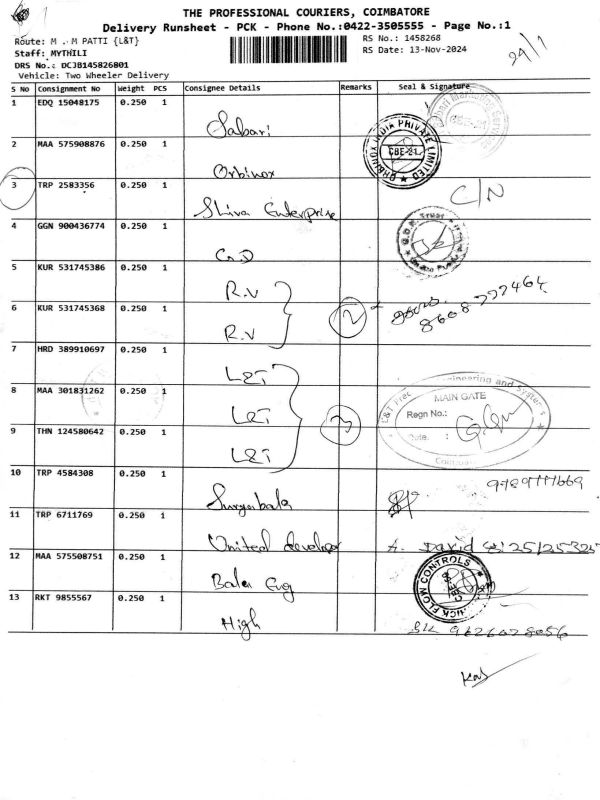 THE PROFESSIONAL COURIERS, COIMBATORE
Delivery Runsheet - PCK - Phone No.:0422-3505555 - Page No.:1
Route: M M PATTI {L&T}
RS No.: 1458268
Staff: MYTHILI
RS Date: 13-Nov-2024
DRS No.: DCJB145826801
Vehicle: Two Wheeler Delivery
S No Consignment No Weight PCS Consignee Details Remarks Seal & Signature
1 EDQ 15048175 0.250 1 Sabari
2 MAA 575908876 0.250 1 Orbinox
ORBINOX INDIA PRIVATE LIMITED
CBE-21
3 TRP 2583356 0.250 1 Shiva Enterprise C/N
4 GGN 900436774 0.250 1 G.D
G.D.M. Trust
5 KUR 531745386 0.250 1 R.V
6 KUR 531745368 0.250 1 R.V
2
8608777464
7 HRD 389910697 0.250 1 L&T
8 MAA 301831262 0.250 1 L&T
9 THN 124580642 0.250 1 L&T
3
MAIN GATE
Regn No.:
Date. :
10 TRP 4584308 0.250 1 Suryabala
11 TRP 6711769 0.250 1 United developer A. David
12 MAA 575508751 0.250 1 Bala Eng
FLOW CONTROLS
13 RKT 9855567 0.250 1 High